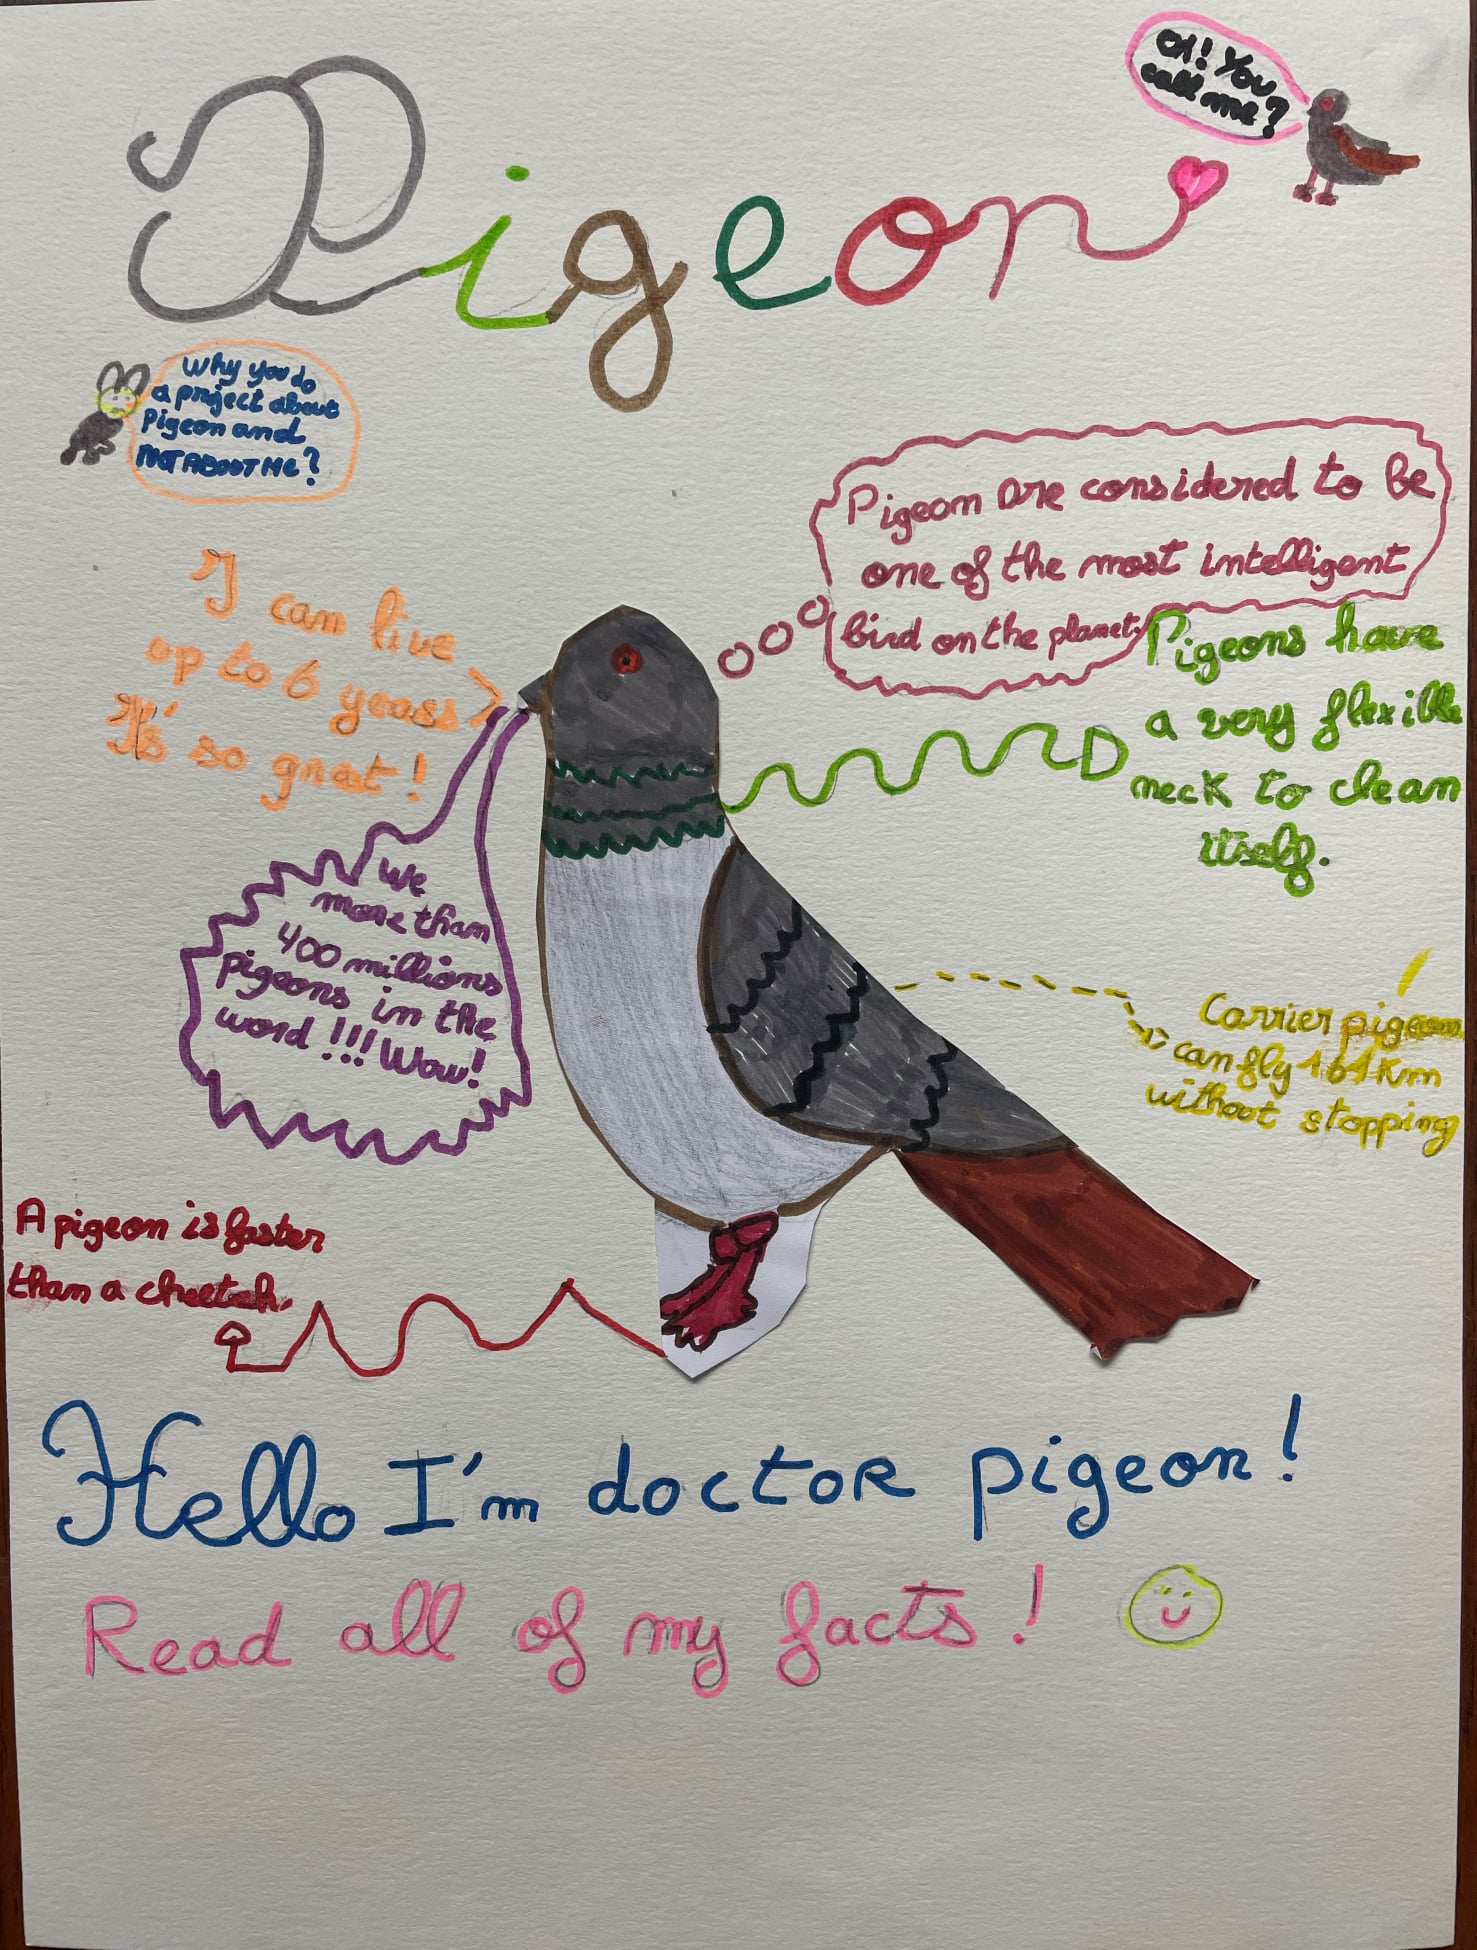 Pigeon
OI! You
call me?
Why you do
a project about
pigeon and
NOT ABOUT ME?
Pigeon are considered to be
one of the most intelligent
bird on the planet.
I can live
up to 6 years
It's so great!
Pigeons have
a very flexible
neck to clean
itself.
We
more than
400 millions
pigeons in the
word!!! Wow!
Carrier pigeon
can fly 161 km
without stopping
A pigeon is faster
than a cheetah.
Hello I'm doctor pigeon!
Read all of my facts!